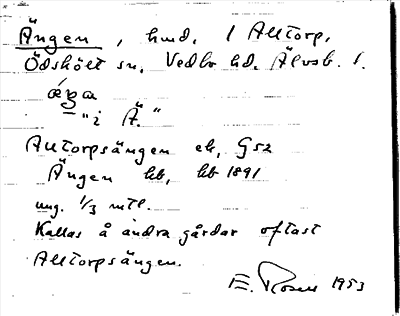 Ängen, hmd. i Alltorp,
Ödskölt sn. Vedbo hd. Älvsb. l.
æŋa
"i Ä."
Alltorpsängen ek, G52
Ängen hb, hb 1891
ung. 1/3 mtl.
Kallas å andra gårdar oftast
Alltorpsängen.
E. Rosen 1953